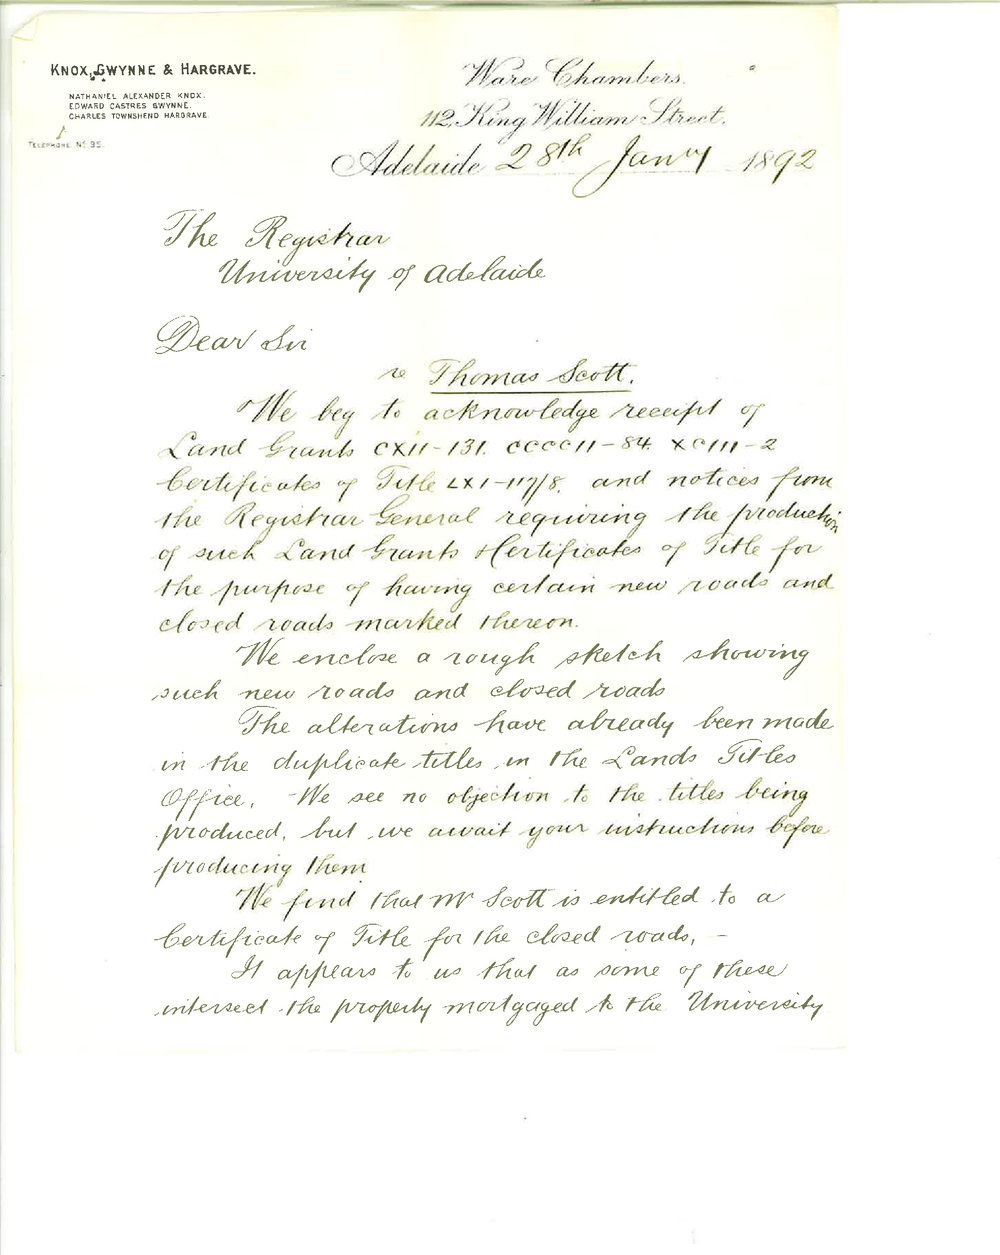 KNOX, GWYNNE & HARGRAVE.
NATHANIEL ALEXANDER KNOX.
EDWARD CASTRES GWYNNE.
CHARLES TOWNSHEND HARGRAVE.
TELEPHONE. No 95.
Ware Chambers.
112, King William Street.
Adelaide 28th Jany 1892
The Registrar
University of Adelaide
Dear Sir
re Thomas Scott.
We beg to acknowledge receipt of
Land Grants CXII-131. CCCCII-84. XCIII-2
Certificates of Title LXI-117/8. and notices from
the Registrar General requiring the production
of such Land Grants & Certificates of Title for
the purpose of having certain new roads and
closed roads marked thereon.
We enclose a rough sketch showing
such new roads and closed roads
The alterations have already been made
in the duplicate titles in the Lands Titles
Office. We see no objection to the titles being
produced, but we await your instructions before
producing them
We find that Mr Scott is entitled to a
Certificate of Title for the closed roads, –
It appears to us that as some of these
intersect the property mortgaged to the University